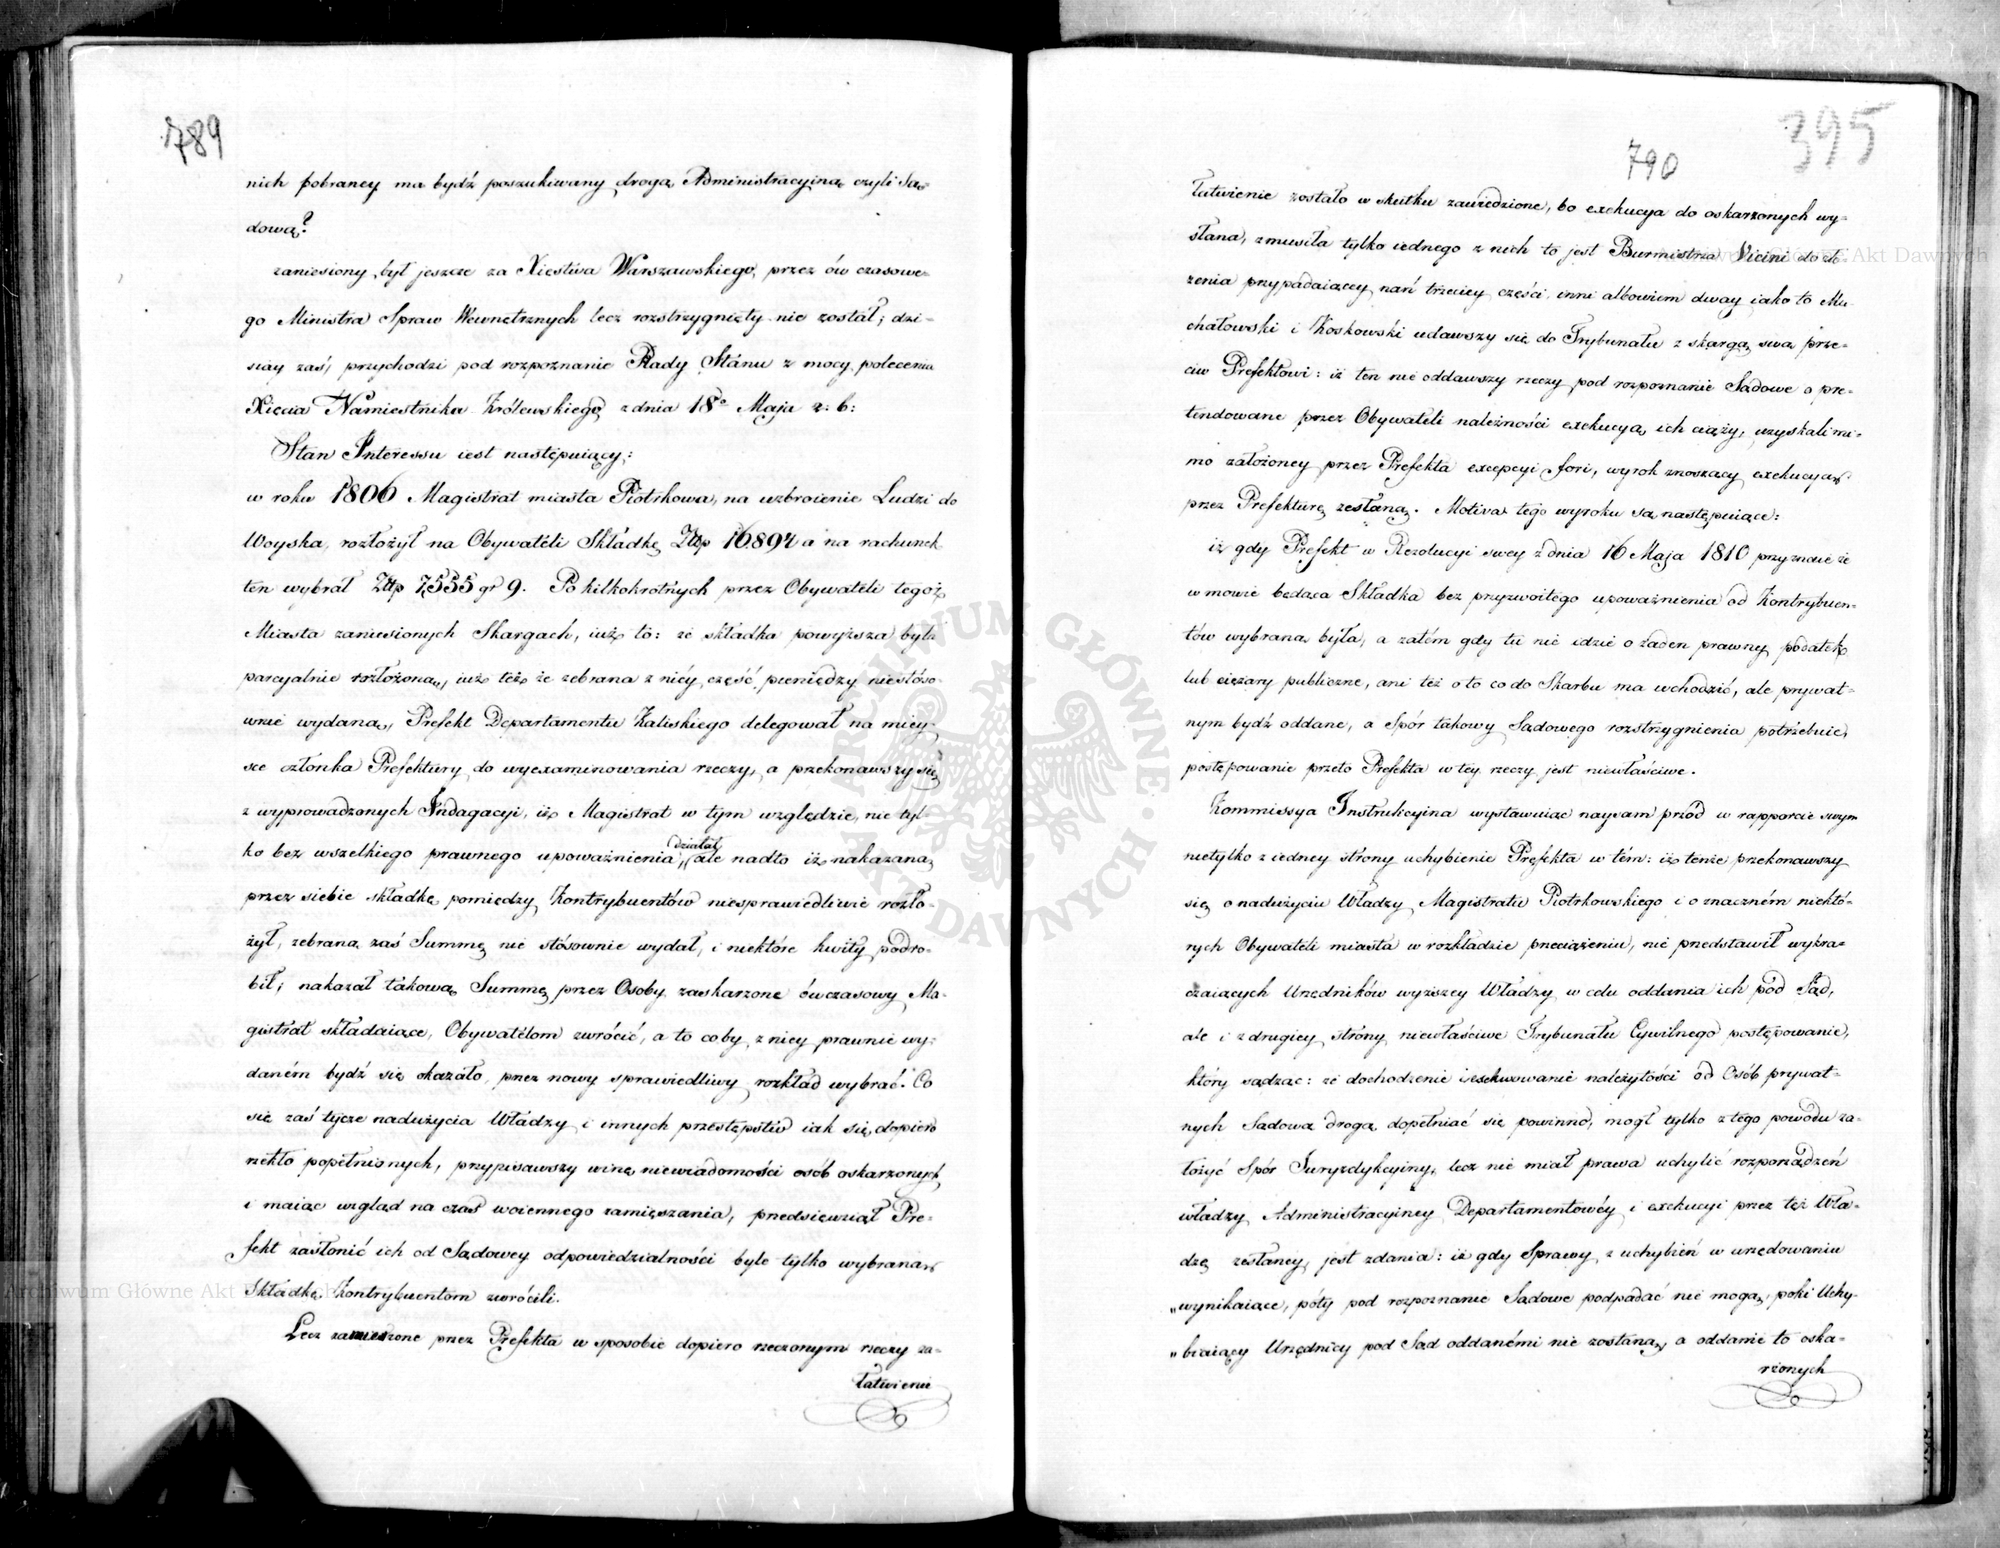 789
nich pobraney ma bydź poszukiwany drogą Administracyiną czyli Są-
dową?
zaniesiony był jeszcze za Xięstwa Warszawskiego, przez ów czasowe-
go Ministra Spraw Wewnętrznych lecz rozstrzygnięty nie został; dzi-
siay zaś, przychodzi pod rozpoznanie Rady Stánu z mocy polecenia
Xięcia Namiestnika Królewskiego z dnia 18º Maja r: b:
Stan Interessu iest następuiący:
w roku 1806 Magistrat miasta Piotrkowa, na uzbroienie Ludzi do
Woyska, rozłożył na Obywateli Składkę Złłp 16894 a na rachunek
ten wybrał Złłp 7,535 gr 9. Po kilkokrotnych przez Obywateli tegoż
Miasta zaniesionych Skargach, iuż to: że składka powyższa była
parcyalnie rozłożoną, iuż też że zebrana z niéy część pieniędzy niestóso-
wnie wydaną, Prefekt Departamentu Kaliskiego delegował na miey-
sce członka Prefektury do wyexaminowania rzeczy, a przekonawszy się
z wyprowadzonych Indagacyi, iż Magistrat w tym względzie, nie tyl-
ko bez wszelkiego prawnego upoważnienia działał, ale nadto iż nakazaną
przez siebie składkę pomiędzy Kontrybuentów niesprawiedliwie rozło-
żył, zebraną zaś Summę nie stósownie wydał, i niektóre kwity podro-
bił; nakazał takową Summę przez Osoby zaskarzone ówczasowy Ma-
gistrat składaiące, Obywatelom zwrócić, a to coby z niey prawnie wy-
daném bydź się okazało, przez nowy sprawiedliwy rozkład wybrać. Co
się zaś tycze nadużycia Władzy i innych przestępstw iak się dopiero
rzekło popełnionych, przypisawszy winę niewiadomości osób oskarzonych,
i maiąc wzgląd na czas woiennego zamięszania, przedsięwziął Pre-
fekt zasłonić ich od Sądowey odpowiedzialności byle tylko wybraną
Składkę Kontrybuentom zwrócili.
Lecz zamierzone przez Prefekta w sposobie dopiero rzeczonym rzeczy za-
łatwienie
395
790
łatwienie zostało w skutku zawiedzione, bo exekucya do oskarzonych wy-
słana, zmusiła tylko iednego z nich to jest Burmistrza Vicini do zło-
żenia przypadaiącey nań trzeciey części, inni albowiem dway iako to Mi-
chałowski i Koskowski udawszy się do Trybunału z skargą swą prze-
ciw Prefektowi: iż ten nie oddawszy rzeczy pod rozpoznanie Sądowe o pre-
tendowane przez Obywateli należności exekucyą ich ciąży, uzyskali mi-
mo założoney przez Prefekta excepcyi fori, wyrok znoszący exekucyą
przez Prefekturę zesłaną. Motiva tego wyroku są następuiące:
iż gdy Prefekt w Rezolucyi swey z dnia 16 Maja 1810 przyznaie że
w mowie będąca Składka bez przyzwoitego upoważnienia od Kontrybuen-
tów wybraną była, a zatém gdy tu nie idzie o żaden prawny podatek
lub ciężary publiczne, ani też o to co do Skarbu ma wchodzić, ale prywat-
nym bydź oddane, a Spór takowy Sądowego rozstrzygnienia potrzebuie,
postępowanie przeto Prefekta w tey rzeczy jest niewłaściwe.
Kommissya Instrukcyina wystawuiąc naysam przód w rapporcie swym
nietylko z iedney strony uchybienie Prefekta w tém: iż tenże przekonawszy
się o nadużyciu Władzy Magistratu Piotrkowskiego i o znaczném niektó-
rych Obywateli miasta w rozkładzie przeciążeniu, nie przedstawił wykra-
czaiących Urzędników wyższey Władzy w celu oddania ich pod Sąd,
ale i z drugiey strony niewłaściwe Trybunału Cywilnego postępowanie,
który sądząc: że dochodzenie i exekwowanie należytości od Osób prywat-
nych Sądową drogą dopełniać się powinno, mógł tylko z tego powodu za-
łożyć Spór Juryzdykcyiny, lecz nie miał prawa uchylić rozporządzeń
władzy Administracyiney Departamentowéy i exekucyi przez też Wła-
dzę zesłaney, jest zdania: iż gdy Sprawy z uchybień w urzędowaniu
„wynikaiące, póty pod rozpoznanie Sądowe podpadać nie mogą, poki Uchy-
„biaiący Urzędnicy pod Sąd oddanémi nie zostaną, a oddanie to oska-
rżonych